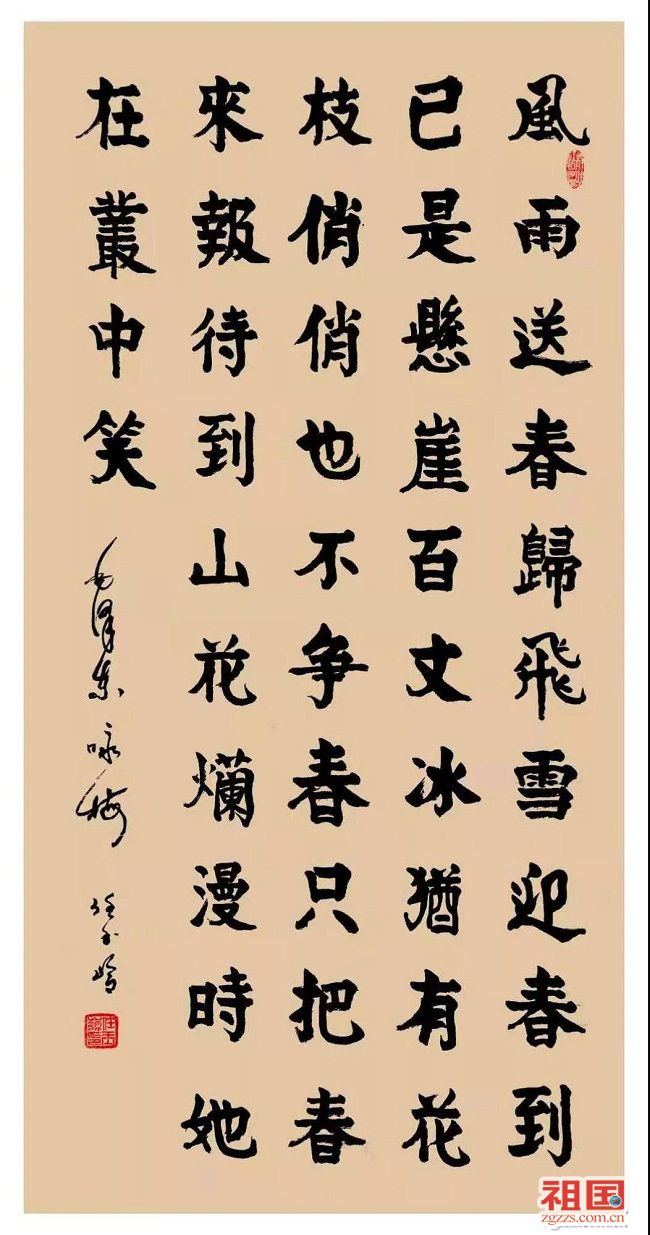 風雨送春歸飛雪迎春到
已是懸崖百丈冰猶有花
枝俏俏也不争春只把春
來報待到山花爛漫時她
在叢中笑
毛泽东咏梅
任玉岭
祖国
zgzzs.com.cn